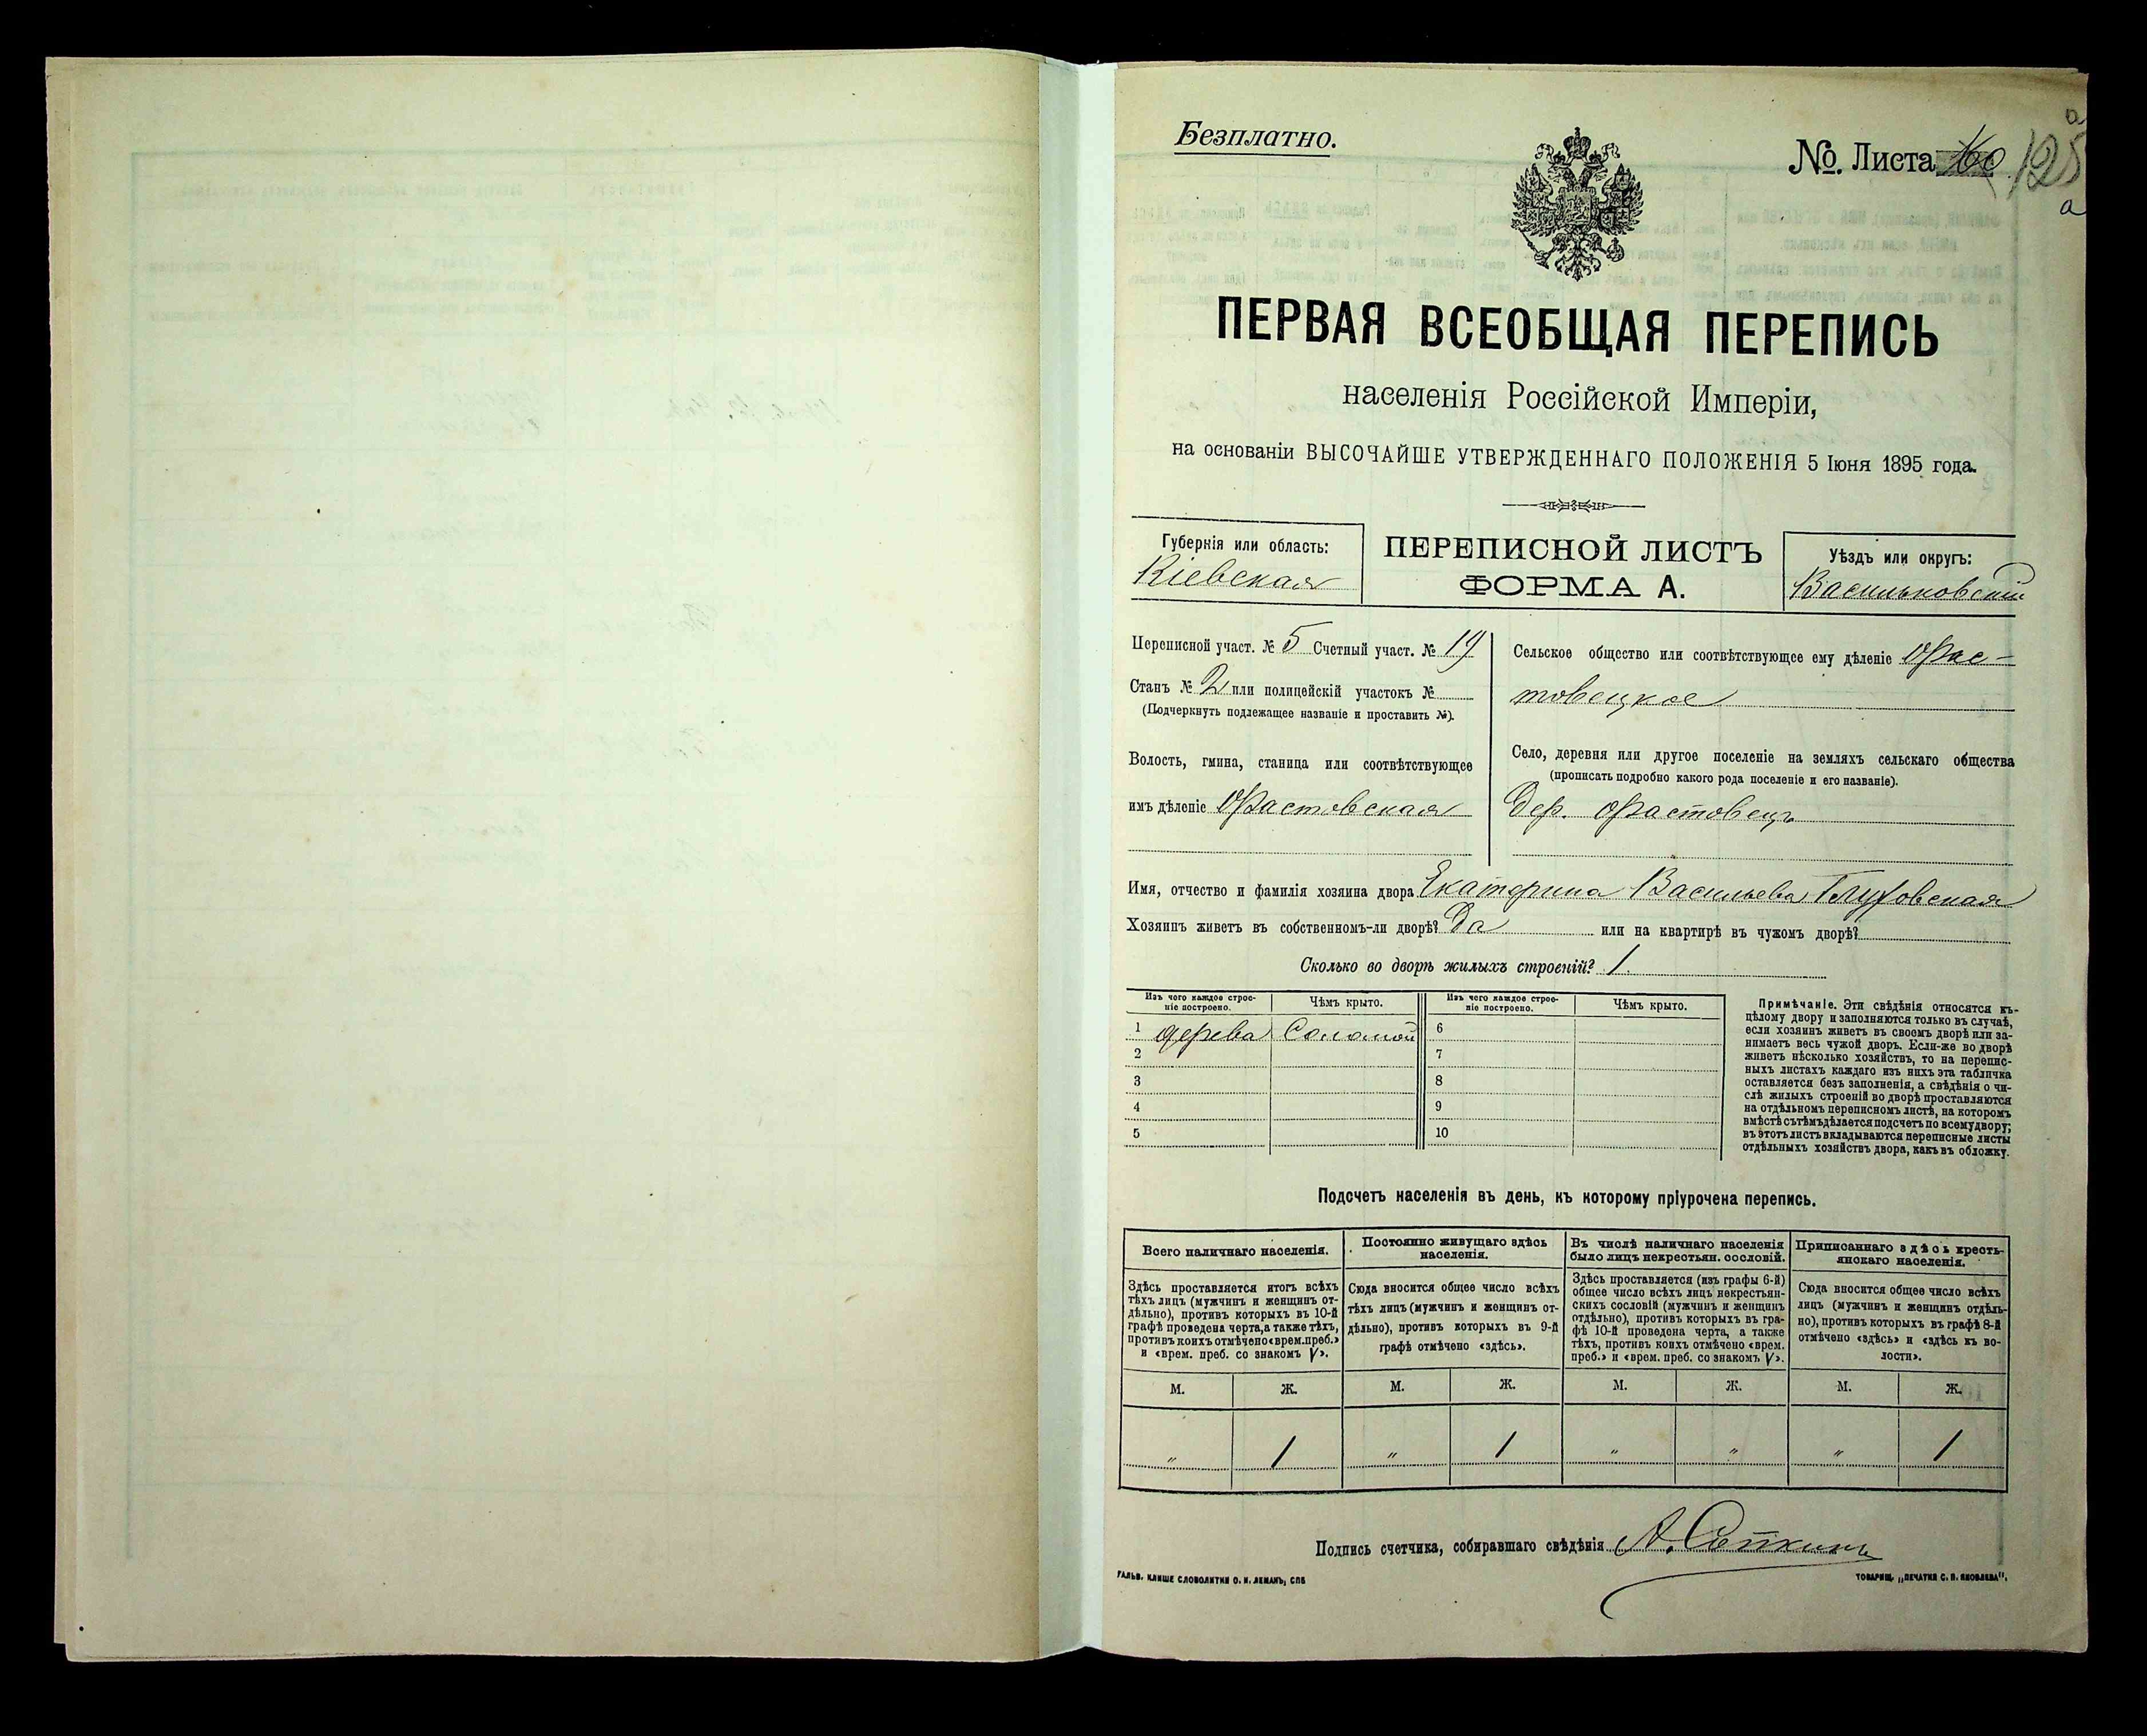 Безплатно.
№ Листа 125
а
ПЕРВАЯ ВСЕОБЩАЯ ПЕРЕПИСЬ
населенія Россійской Имперіи,
на основаніи ВЫСОЧАЙШЕ УТВЕРЖДЕННАГО ПОЛОЖЕНІЯ 5 Іюня 1895 года.
Губернія или область:
Кіевская
ПЕРЕПИСНОЙ ЛИСТЪ
ФОРМА А.
Уѣздъ или округъ:
Васильковскій
Переписной участ. № 5 Счетный участ. № 19
Станъ № 2 или полицейскій участокъ №
(Подчеркнуть подлежащее названіе и проставить №).
Волость, гмина, станица или соотвѣтствующее
имъ дѣленіе Фастовская
Сельское общество или соотвѣтствующее ему дѣленіе Фас-
товецкое
Село, деревня или другое поселеніе на земляхъ сельскаго общества
(прописать подробно какого рода поселеніе и его названіе).
Дер. Фастовецъ
Имя, отчество и фамилія хозяина двора Екатерина Васильева Глуховская
Хозяинъ живетъ въ собственномъ-ли дворѣ? Да или на квартирѣ въ чужомъ дворѣ?
Сколько во дворѣ жилыхъ строеній? 1.
Изъ чего каждое строе-
ніе построено.
Чѣмъ крыто.
Изъ чего каждое строе-
ніе построено.
Чѣмъ крыто.
1 дерева Соломой 6
2 7
3 8
4 9
5 10
Примѣчаніе. Эти свѣдѣнія относятся къ-
цѣлому двору и заполняются только въ случаѣ,
если хозяинъ живетъ въ своемъ дворѣ или за-
нимаетъ весь чужой дворъ. Если-же во дворѣ
живетъ нѣсколько хозяйствъ, то на перепис-
ныхъ листахъ каждаго изъ нихъ эта табличка
оставляется безъ заполненія, а свѣдѣнія о чи-
слѣ жилыхъ строеній во дворѣ проставляются
на отдѣльномъ переписномъ листѣ, на которомъ
вмѣстѣ съ тѣмъ дѣлается подсчетъ по всему двору;
въ этотъ листъ вкладываются переписные листы
отдѣльныхъ хозяйствъ двора, какъ въ обложку.
Подсчетъ населенія въ день, къ которому пріурочена перепись.
Всего наличнаго населенія.
Здѣсь проставляется итогъ всѣхъ
тѣхъ лицъ (мужчинъ и женщинъ от-
дѣльно), противъ которыхъ въ 10-й
графѣ проведена черта, а также тѣхъ,
противъ коихъ отмѣчено «врем. преб.»
и «врем. преб. со знакомъ V».
Постоянно живущаго здѣсь
населенія.
Сюда вносится общее число всѣхъ
тѣхъ лицъ (мужчинъ и женщинъ от-
дѣльно), противъ которыхъ въ 9-й
графѣ отмѣчено «здѣсь».
Въ числѣ наличнаго населенія
было лицъ некрестьян. сословій.
Здѣсь проставляется (изъ графы 6-й)
общее число всѣхъ лицъ некрестьян-
скихъ сословій (мужчинъ и женщинъ
отдѣльно), противъ которыхъ въ гра-
фѣ 10-й проведена черта, а также
тѣхъ, противъ коихъ отмѣчено «врем.
преб.» и «врем. преб. со знакомъ V».
Приписаннаго здѣсь кресть-
янскаго населенія.
Сюда вносится общее число всѣхъ
лицъ (мужчинъ и женщинъ отдѣль-
но), противъ которыхъ въ графѣ 8-й
отмѣчено «здѣсь» и «здѣсь къ во-
лости».
М. Ж. М. Ж. М. Ж. М. Ж.
" 1 " 1 " " " 1
Подпись счетчика, собиравшаго свѣдѣнія
ГАЛЬВ. КЛИШЕ СЛОВОЛИТНИ О. И. ЛЕМАНЪ, СПБ
ТОВАРИЩ. „ПЕЧАТНЯ С. П. ЯКОВЛЕВА".